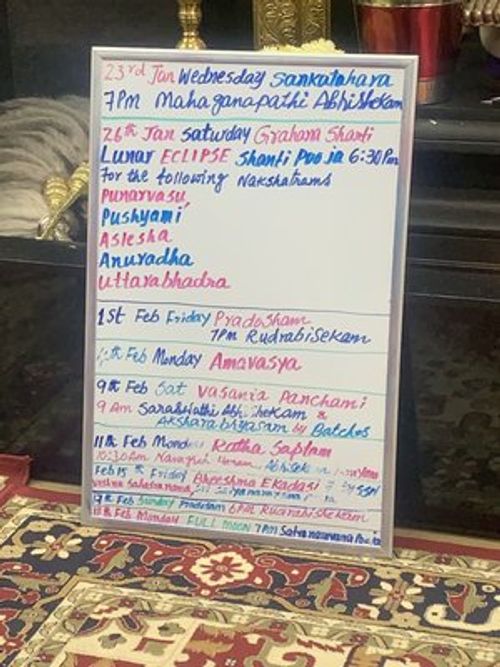 23rd Jan Wednesday Sankatahara
7PM Mahaganapathi Abhishekam
26th Jan Saturday Grahana Shanti
Lunar ECLIPSE Shanti Pooja 6:30Pm
For the following Nakshatrams
Punarvasu,
Pushyami
Aslesha
Anuradha
Uttarabhadra
1st Feb Friday Pradosham
7PM Rudrabisekam
Feb Monday Amavasya
9th Feb Sat Vasanta Panchami
9 Am Saraswathi Abhishekam &
Aksharabhyasam by Batches
11th Feb Monday Ratha Saptam
10:30Am
Feb 15th Friday Bheeshma Ekadasi
17th Feb Sunday Pradosam 6PM Rudrabisekam
18th Feb Monday FULL MOON 7PM Satyanarayana Pooja